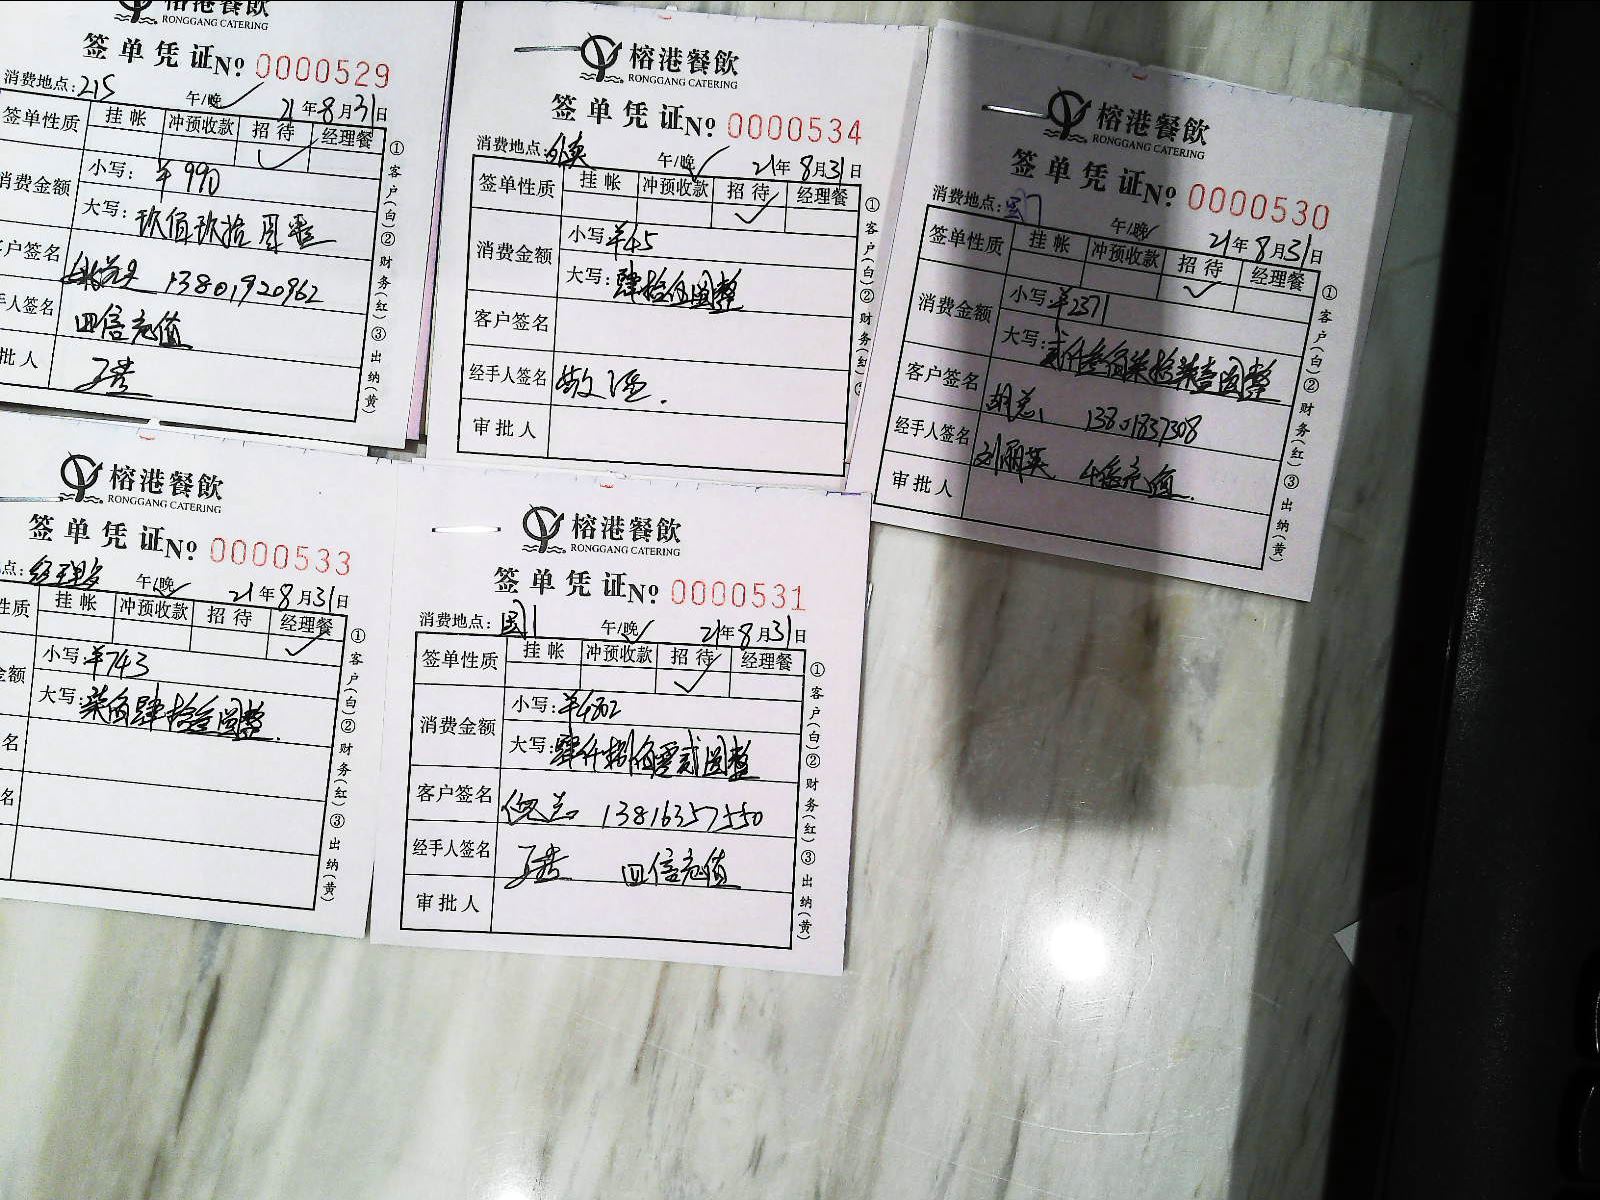 榕港餐飲
RONGGANG CATERING
签单凭证№ 0000529
消费地点: 215 午/晚 21年8月31日
签单性质 挂帐 冲预收款 招待 经理餐
消费金额 小写: ¥990
大写: 玖佰玖拾圆整
客户签名 13801920962
手人签名 四倍充值
批人
①客户(白)②财务(红)③出纳(黄)
榕港餐飲
RONGGANG CATERING
签单凭证№ 0000534
消费地点: 外卖 午/晚 21年8月31日
签单性质 挂帐 冲预收款 招待 经理餐
消费金额 小写: ¥45
大写: 肆拾伍圆整
客户签名
经手人签名
审批人
①客户(白)②财务(红)
榕港餐飲
RONGGANG CATERING
签单凭证№ 0000530
消费地点: 午/晚 21年8月31日
签单性质 挂帐 冲预收款 招待 经理餐
消费金额 小写: ¥2371
大写: 贰仟叁佰柒拾壹圆整
客户签名 胡总 13801837308
经手人签名 刘丽英 4倍充值
审批人
①客户(白)②财务(红)③出纳(黄)
榕港餐飲
RONGGANG CATERING
签单凭证№ 0000533
点: 经理餐 午/晚 21年8月31日
性质 挂帐 冲预收款 招待 经理餐
金额 小写: ¥743
大写: 柒佰肆拾叁圆整
名
名
①客户(白)②财务(红)③出纳(黄)
榕港餐飲
RONGGANG CATERING
签单凭证№ 0000531
消费地点: 国1 午/晚 21年8月31日
签单性质 挂帐 冲预收款 招待 经理餐
消费金额 小写: ¥4802
大写: 肆仟捌佰零贰圆整
客户签名 倪总 13816357550
经手人签名 四倍充值
审批人
①客户(白)②财务(红)③出纳(黄)